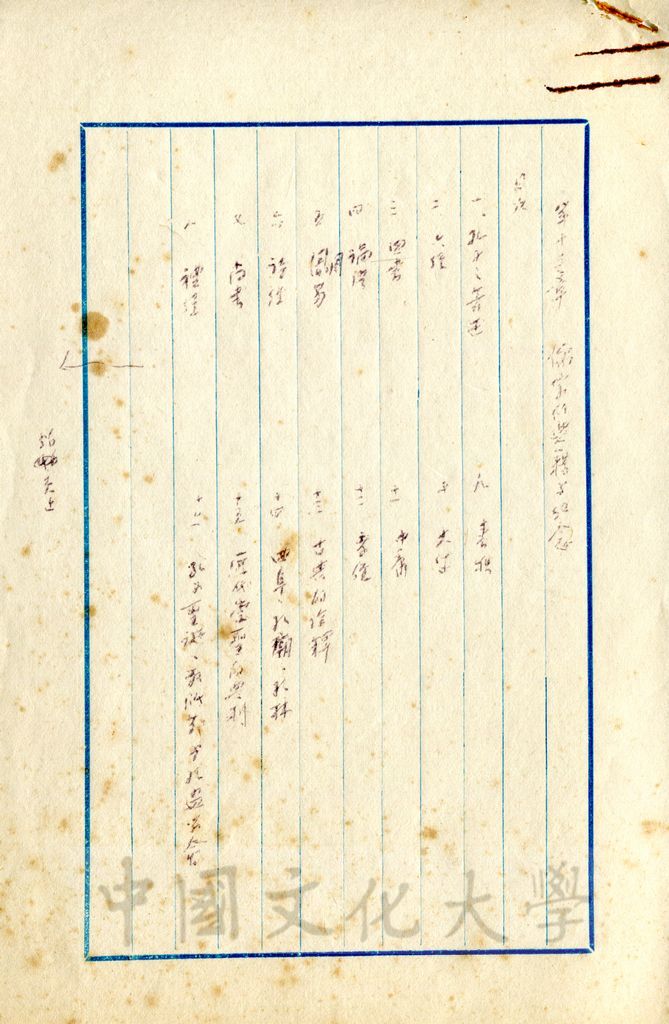 第十三章 儒家的典籍與紀念
目次
一、孔子之著述
二 六經
三 四書
四 論語
五 周易
六 詩經
七 尚書
八 禮經
九 春秋
十 大學
十一 中庸
十二 孝經
十三 古典的詮釋
十四 曲阜、孔廟、孔林
十五 歷代崇聖的典制
孔子聖誕、教師節與孔孟學會
中國文化大學